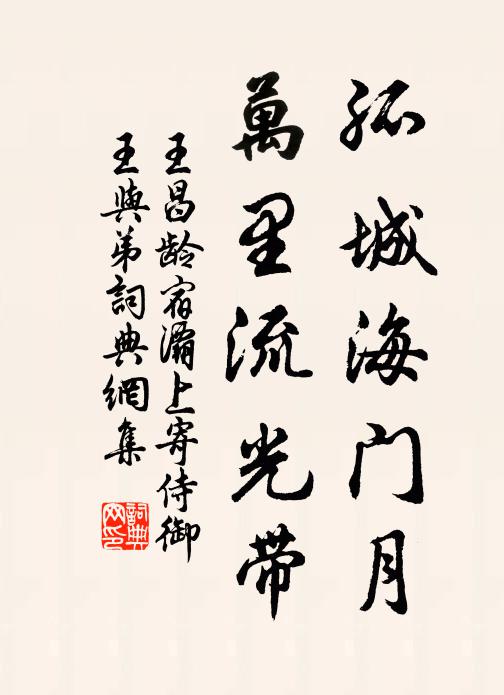 孤城海门月
萬里流光带
王昌龄宿灞上寄侍御
王與弟詞典網集
詞典網印